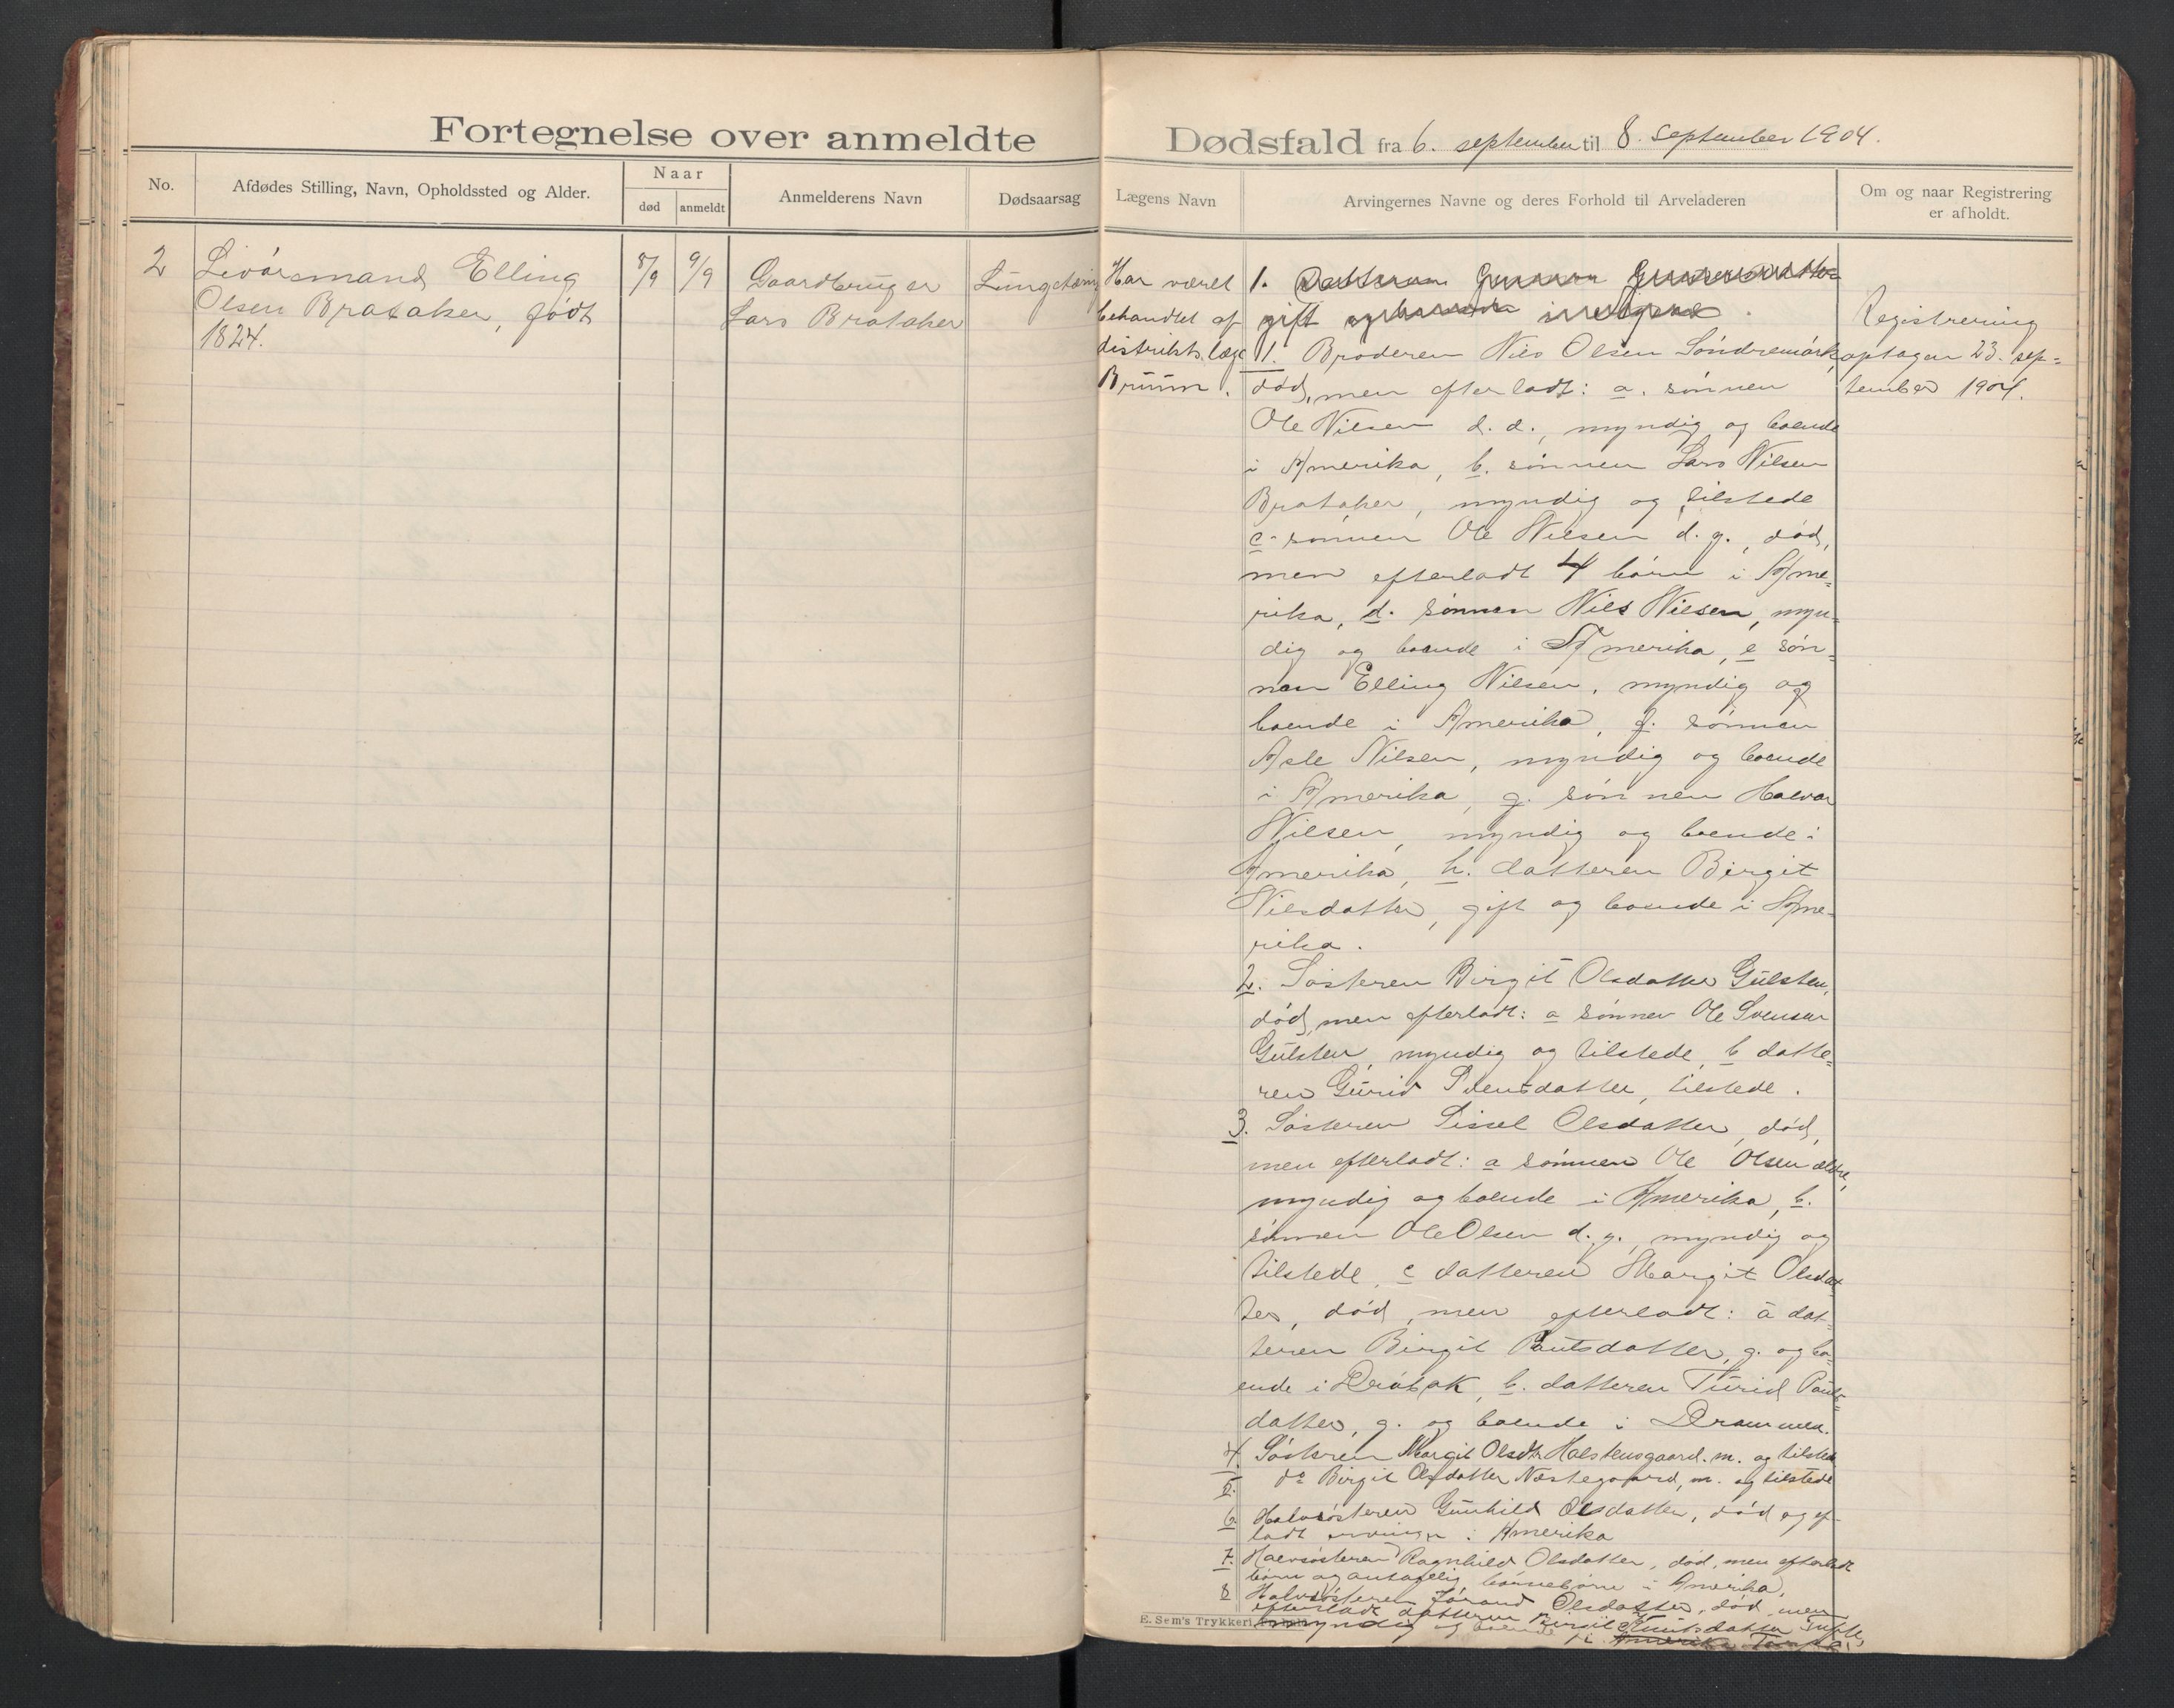 Fortegnelse over anmeldte
Dødsfald fra 6. september til 8. september 1904.
No.
Afdødes Stilling, Navn, Opholdssted og Alder.
Naar
død
anmeldt
Anmelderens Navn
Dødsaarsag
Lægens Navn
Arvingernes Navne og deres Forhold til Arveladeren
Om og naar Registrering
er afholdt.
2
Livórsmand Elling
Olsen Brataker, født
1824.
8/9
9/9
Gaardbruger
Lars Brataker
Lungetæring
Har været
behandlet af
distriktslæge
Bruun.
1. Datteren
gift
1. Broderen Nils Olsen Söndremörk,
död, men efterladt: a. sönnen
Ole Nilsen d. æ., myndig og boende
i Amerika, b. sönnen Lars Nilsen
Brataker, myndig og tilstede
c. sönnen Ole Nilsen d. y., död,
men efterladt 4 börn i Ame=
rika, d. sönnen Nils Nilsen, myn=
dig og boende i Amerika, e sön=
nen Elling Nilsen, myndig og
boende i Amerika, f. sönnen
Asle Nilsen, myndig og boende
i Amerika, g. sönnen Halvor
Nilsen, myndig og boende i
Amerika, h. datteren Birgit
Nilsdatter, gift og boende i Ame=
rika.
2. Sösteren Birgit Olsdatter Gulsten,
död, men efterladt: a sönnen Ole Svensen
Gulsten, myndig og tilstede, b datte=
ren Gurid Svensdatter, tilstede.
3. Sösteren Sissel Olsdatter, död,
men efterladt: a sönnen Ole Olsen ældre,
myndig og boende i Amerika, b.
sönnen Ole Olsen d. y., myndig og
tilstede, c datteren Margit Olsdat=
ter, död, men efterladt: a dat=
teren Birgit Paulsdatter, g. og bo=
ende i Dröbak, b. datteren Turid Pauls=
datter, g. og boende i Drammen.
4. Sösteren Margit Olsdtr. Halstensgaard. m. og tilstede
5. do Birgit Olsdatter Nestegaard, m. og tilstede
6. Halvsösteren Gunhild Olsdatter, död og ef=
ladt arvinger i Amerika
7. Halvsösteren Ragnhild Olsdatter, död, men efterladt
börn og antagelig börnebörn i Amerika.
8 Halvsösteren Jörand Olsdatter, död, men
efterladt datteren Knutsdatter Tufte,
myndig og boende i Amerika
Registrering
optagen 23. sep=
tember 1904.
E. Sem's Trykkeri